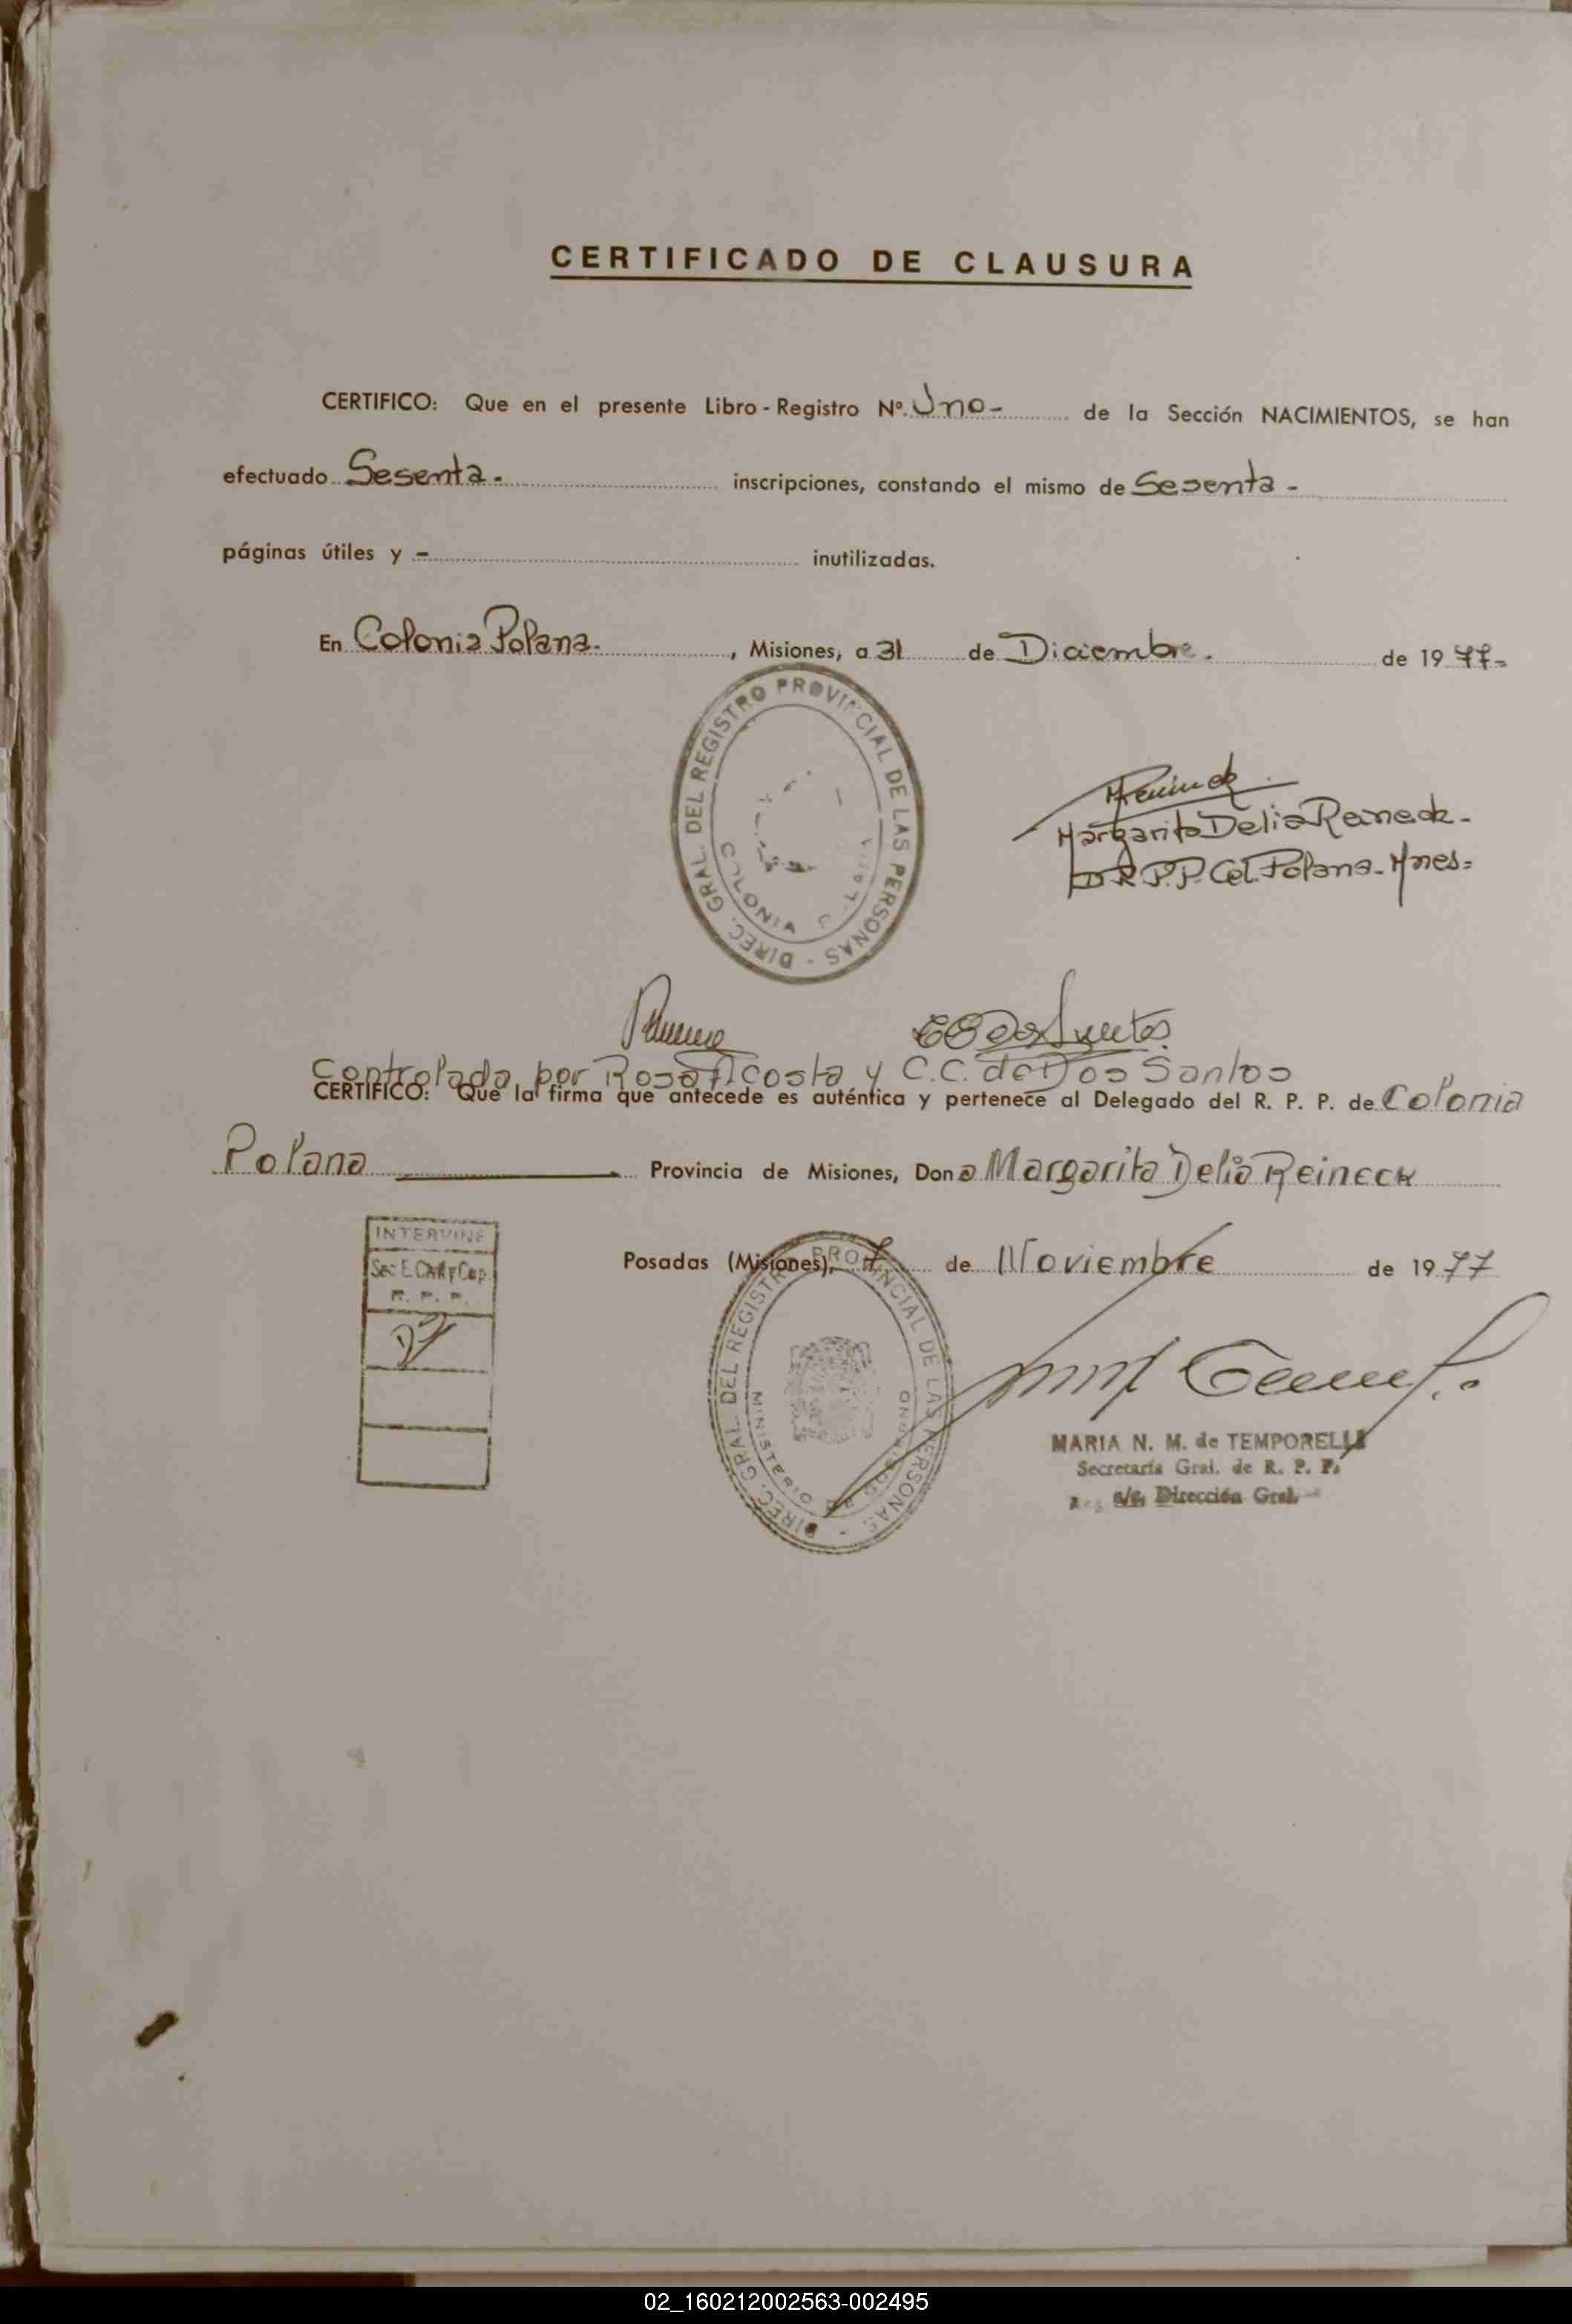 CERTIFICADO DE CLAUSURA
CERTIFICO: Que en el presente Libro - Registro Nº. Uno- de la Sección NACIMIENTOS, se han
efectuado Sesenta. inscripciones, constando el mismo de Sesenta -
páginas útiles y - inutilizadas.
En Colonia Polana. , Misiones, a 31 de Diciembre. de 1977-
DIREC. GRAL. DEL REGISTRO PROVINCIAL DE LAS PERSONAS -
COLONIA
Margarita Delia Reineck.
D.R.P.P. Col. Polana. Mnes=
Controlada por Rosa Acosta y C.C. de Dos Santos
CERTIFICO: Que la firma que antecede es auténtica y pertenece al Delegado del R. P. P. de Colonia
Polana Provincia de Misiones, Dona Margarita Delia Reineck
INTERVINE
R. P. P.
Posadas (Misiones), 7 de Noviembre de 1977
DIREC. GRAL. DEL REGISTRO PROVINCIAL DE LAS PERSONAS -
MINISTERIO DE GOBIERNO
MARIA N. M. de TEMPORELLI
Secretaría Gral. de R. P. P.
a/c. Dirección Gral.
02_160212002563-002495